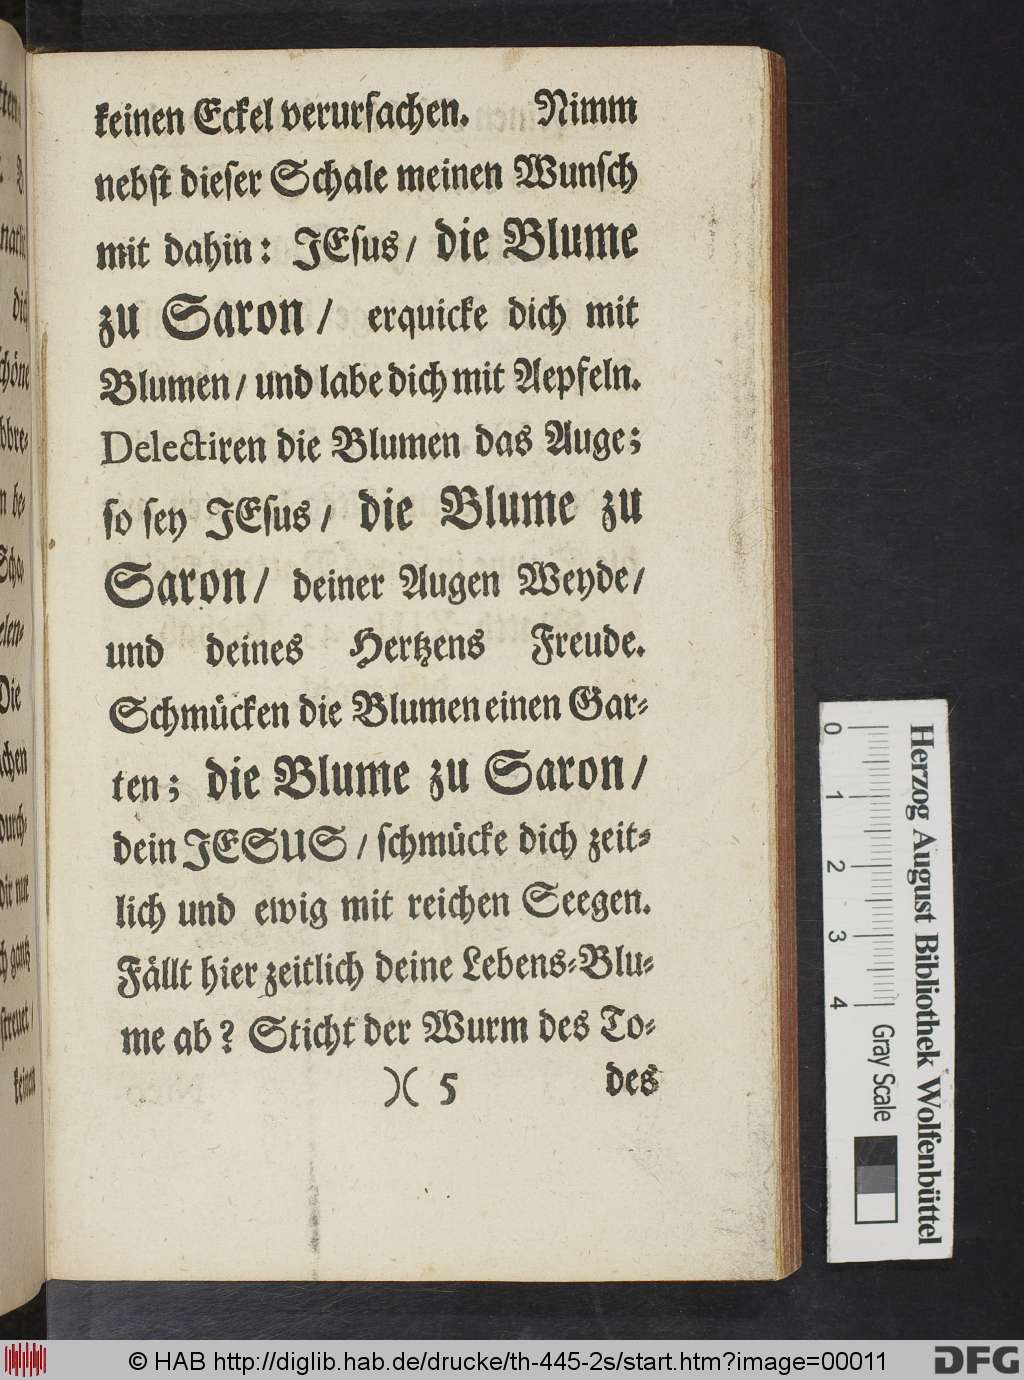 keinen Eckel verursachen. Nimm
nebst dieser Schale meinen Wunsch
mit dahin: JEsus/ die Blume
zu Saron/ erquicke dich mit
Blumen/ und labe dich mit Aepfeln.
Delectiren die Blumen das Auge;
so sey JEsus/ die Blume zu
Saron/ deiner Augen Weyde/
und deines Hertzens Freude.
Schmücken die Blumen einen Gar-
ten; die Blume zu Saron/
dein JESUS/ schmücke dich zeit-
lich und ewig mit reichen Seegen.
Fällt hier zeitlich deine Lebens-Blu-
me ab? Sticht der Wurm des To-
)( 5 des
0 1 2 3 4
Herzog August Bibliothek Wolfenbüttel
Gray Scale
© HAB http://diglib.hab.de/drucke/th-445-2s/start.htm?image=00011
DFG